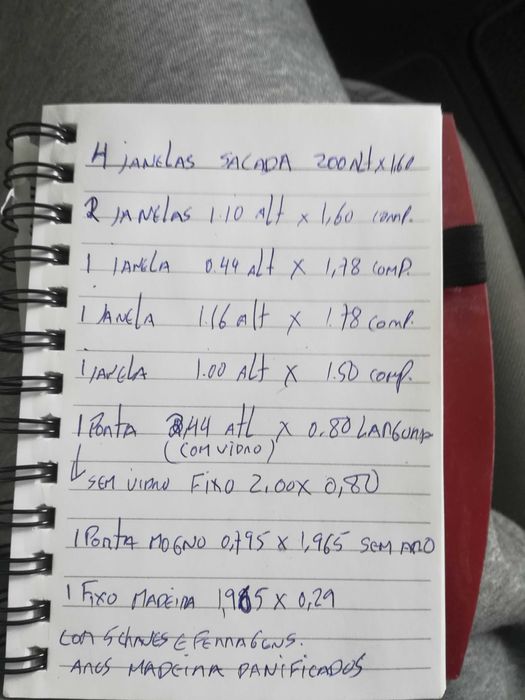 4 JANELAS SACADA 200 Alt x 1,60
2 JANELAS 1.10 Alt x 1,60 comp.
1 JANELA 0.44 Alt x 1,78 comp.
1 JANELA 1.16 Alt x 1.78 comp.
1 JANELA 1.00 Alt x 1.50 comp.
1 PORTA 2,44 ATL x 0.80 LARGURA
(COM VIDRO)
↓ SEM VIDRO FIXO 2.00 x 0,80
1 PORTA MOGNO 0,795 x 1,965 SEM ARO
1 FIXO MADEIRA 1,965 x 0,29
COM 5 CHAVES E FERRAGENS.
AROS MADEIRA DANIFICADOS